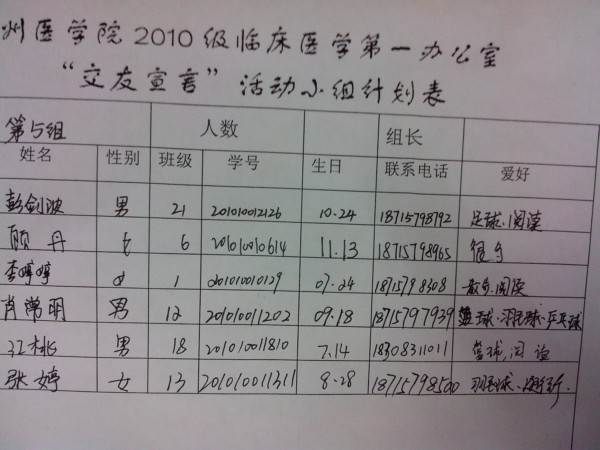 州医学院2010级临床医学第一办公室
“交友宣言”活动小组计划表
第5组 人数 组长
姓名 性别 班级 学号 生日 联系电话 爱好
彭剑波 男 21 201010012126 10.24 18715798792 足球、阅读
顾丹 女 6 201010010614 11.13 18715798965
李婷婷 女 1 201010010129 07.24 18715798308 散步、阅读
肖常明 男 12 201010011202 09.18 18715797939 篮球、羽毛球、乒乓球
男 18 201010011810 7.14 18308311011 篮球,阅读
张婷 女 13 201010011311 8.28 18715798500 羽毛球、